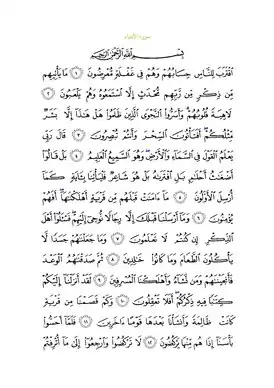 سورة الأنبياء
بِسْمِ ٱللَّهِ ٱلرَّحْمَٰنِ ٱلرَّحِيمِ
ٱقْتَرَبَ لِلنَّاسِ حِسَابُهُمْ وَهُمْ فِي غَفْلَةٍ مُّعْرِضُونَ ١ مَا يَأْتِيهِم
مِّن ذِكْرٍ مِّن رَّبِّهِم مُّحْدَثٍ إِلَّا ٱسْتَمَعُوهُ وَهُمْ يَلْعَبُونَ ٢
لَاهِيَةً قُلُوبُهُمْ وَأَسَرُّوا۟ ٱلنَّجْوَى ٱلَّذِينَ ظَلَمُوا۟ هَلْ هَٰذَآ إِلَّا بَشَرٌ
مِّثْلُكُمْ أَفَتَأْتُونَ ٱلسِّحْرَ وَأَنتُمْ تُبْصِرُونَ ٣ قَالَ رَبِّي
يَعْلَمُ ٱلْقَوْلَ فِي ٱلسَّمَآءِ وَٱلْأَرْضِ وَهُوَ ٱلسَّمِيعُ ٱلْعَلِيمُ ٤ بَلْ قَالُوٓا۟
أَضْغَٰثُ أَحْلَٰمٍۭ بَلِ ٱفْتَرَىٰهُ بَلْ هُوَ شَاعِرٌ فَلْيَأْتِنَا بِـَٔايَةٍ كَمَآ
أُرْسِلَ ٱلْأَوَّلُونَ ٥ مَآ ءَامَنَتْ قَبْلَهُم مِّن قَرْيَةٍ أَهْلَكْنَٰهَآ أَفَهُمْ
يُؤْمِنُونَ ٦ وَمَآ أَرْسَلْنَا قَبْلَكَ إِلَّا رِجَالًا نُّوحِيٓ إِلَيْهِمْ فَسْـَٔلُوٓا۟ أَهْلَ
ٱلذِّكْرِ إِن كُنتُمْ لَا تَعْلَمُونَ ٧ وَمَا جَعَلْنَٰهُمْ جَسَدًا لَّا
يَأْكُلُونَ ٱلطَّعَامَ وَمَا كَانُوا۟ خَٰلِدِينَ ٨ ثُمَّ صَدَقْنَٰهُمُ ٱلْوَعْدَ
فَأَنجَيْنَٰهُمْ وَمَن نَّشَآءُ وَأَهْلَكْنَا ٱلْمُسْرِفِينَ ٩ لَقَدْ أَنزَلْنَآ إِلَيْكُمْ
كِتَٰبًا فِيهِ ذِكْرُكُمْ أَفَلَا تَعْقِلُونَ ١٠ وَكَمْ قَصَمْنَا مِن قَرْيَةٍ
كَانَتْ ظَالِمَةً وَأَنشَأْنَا بَعْدَهَا قَوْمًا ءَاخَرِينَ ١١ فَلَمَّآ أَحَسُّوا۟
بَأْسَنَآ إِذَا هُم مِّنْهَا يَرْكُضُونَ ١٢ لَا تَرْكُضُوا۟ وَٱرْجِعُوٓا۟ إِلَىٰ مَآ أُتْرِفْتُمْ